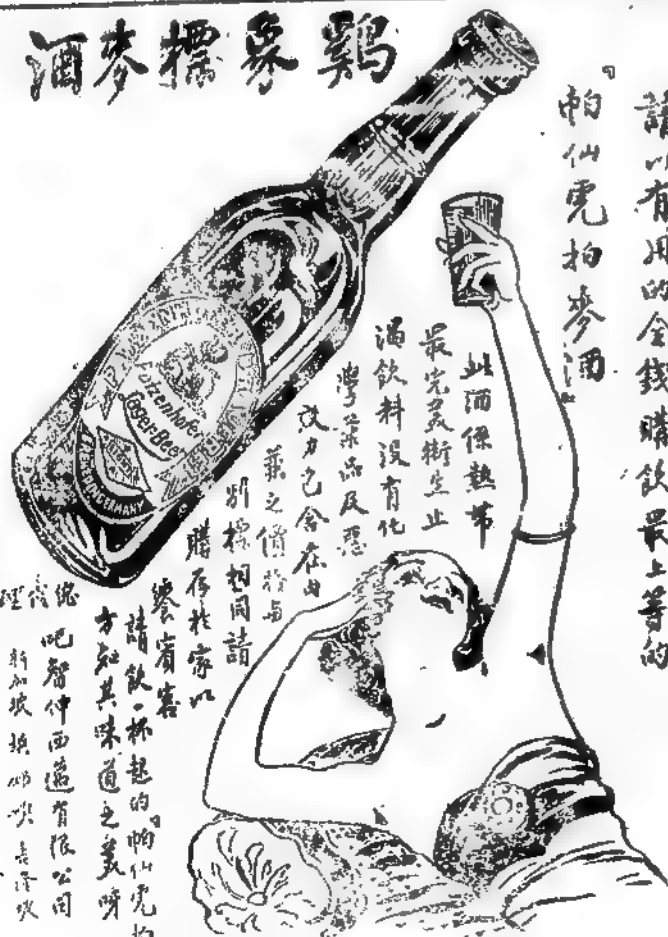 鷄象標麥酒
請以有用的金錢購飲最上等的
『帕仙虎拍麥酒』
此酒係熱帶
最完美衛生止
渴飲料沒有化
學藥品及惡
效力包含在內
之價格與
別標相同請
購存於家以
饗賓客
請飲一杯起的『帕仙虎拍
方知其味道之美呀
總代理
吧智仲西薀有限公司
新加坡 檳 吉隆坡
Patzenhofer
Lager Beer
GERMANY